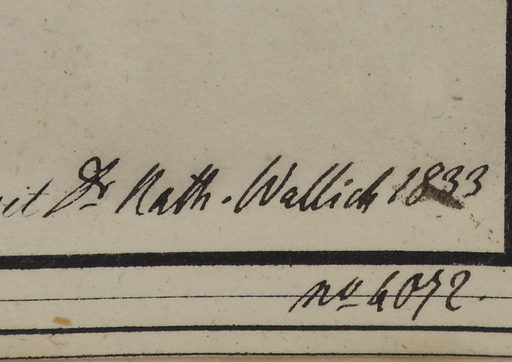 Dr Nath. Wallich 1833
no 6072.